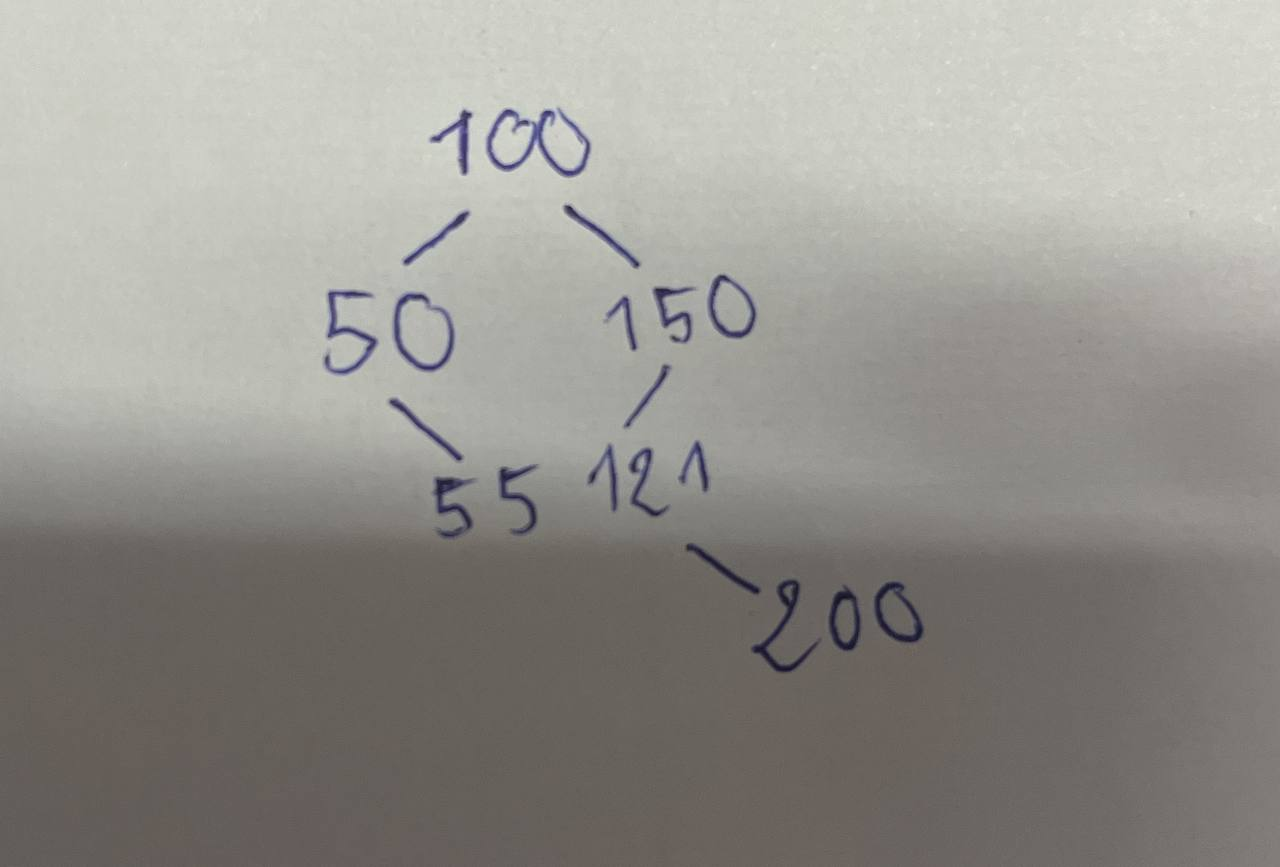 100
50 150
55 121
200